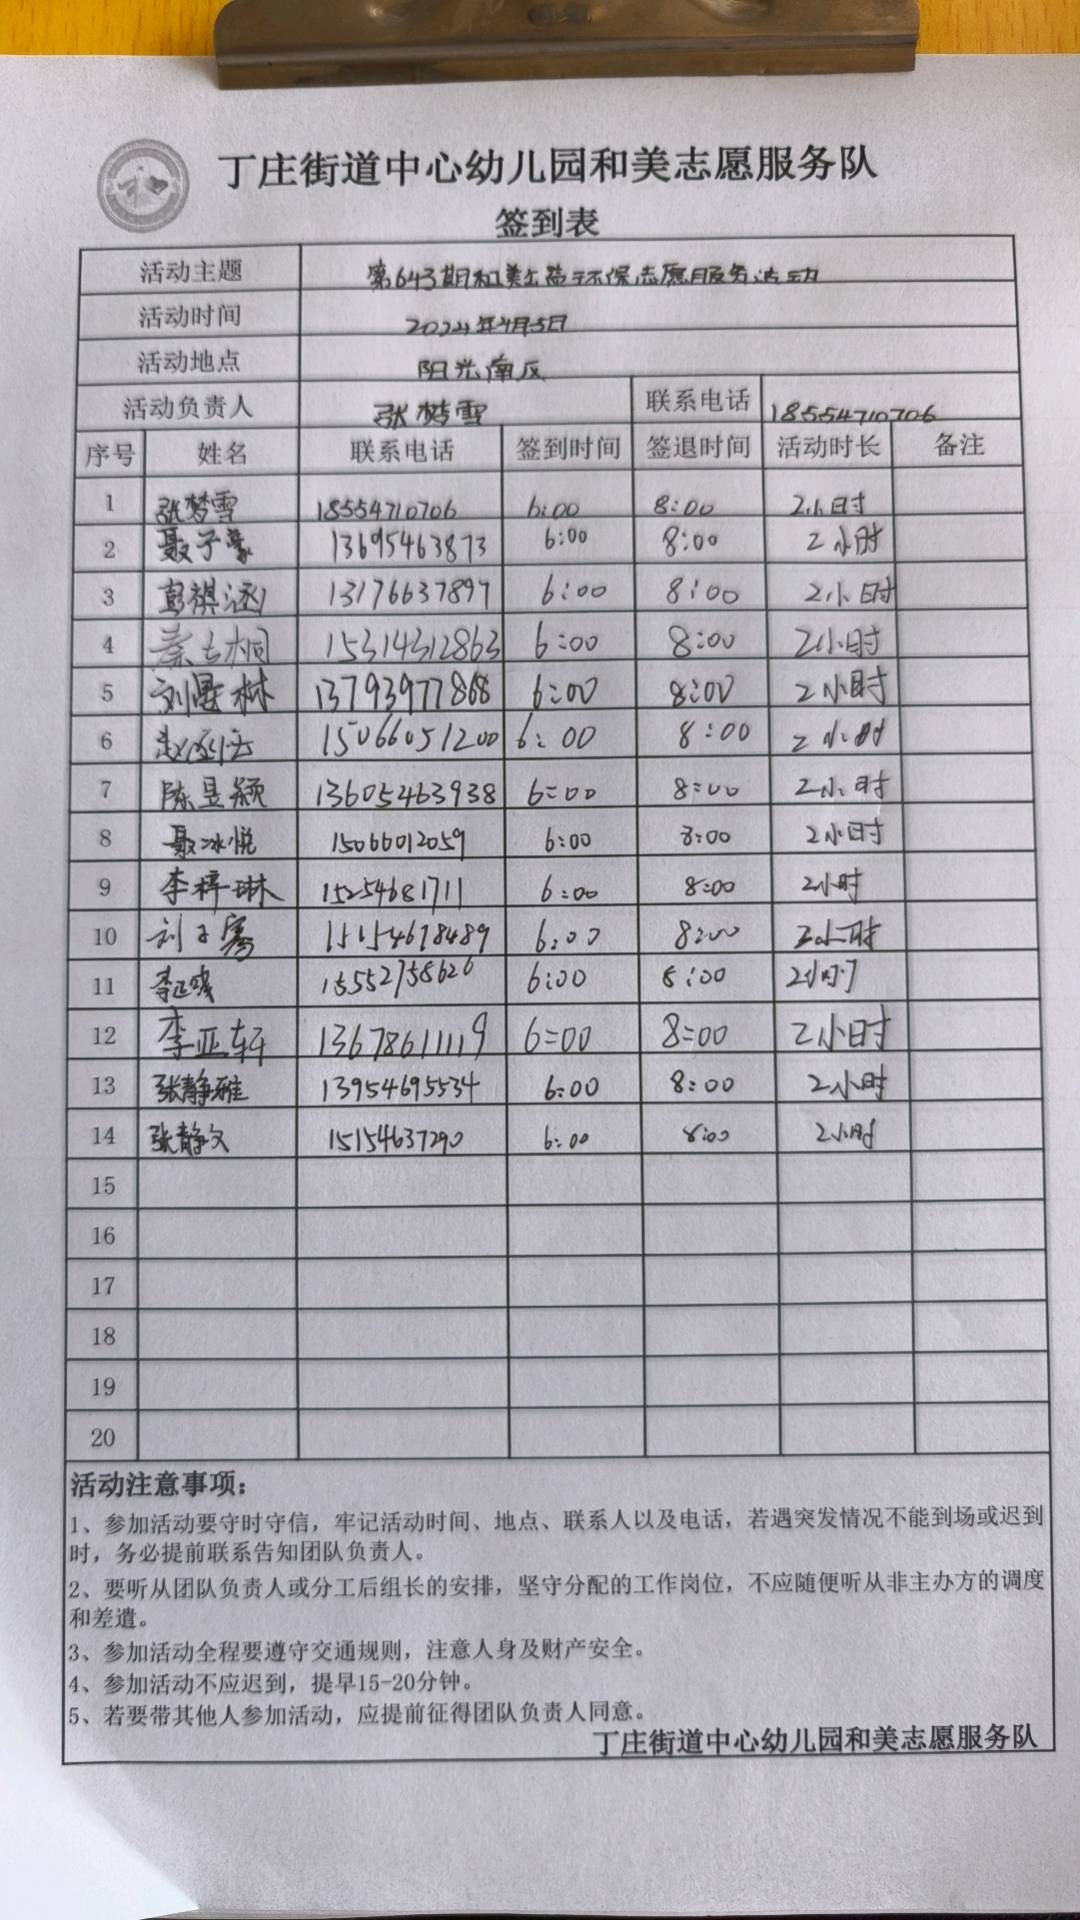 丁庄街道中心幼儿园和美志愿服务队
签到表
活动主题 第643期和美公益环保志愿服务活动
活动时间 2024年4月5日
活动地点 阳光南区
活动负责人 张梦雪 联系电话 18554710706
序号 姓名 联系电话 签到时间 签退时间 活动时长 备注
1 张梦雪 18554710706 6:00 8:00 2小时
2 聂子豪 13695463873 6:00 8:00 2小时
3 彭祺涵 13176637897 6:00 8:00 2小时
4 15314312863 6:00 8:00 2小时
5 13793977868 6:00 8:00 2小时
6 15066051200 6:00 8:00 2小时
7 陈昱颖 13605463938 6:00 8:00 2小时
8 聂冰悦 15066012059 6:00 8:00 2小时
9 李梓琳 15254681711 6:00 8:00 2小时
10 刘子骞 15154678489 6:00 8:00 2小时
11 15552758626 6:00 8:00 2小时
12 李亚轩 13678611119 6:00 8:00 2小时
13 张静雅 13954695534 6:00 8:00 2小时
14 张静文 15154637290 6:00 8:00 2小时
15
16
17
18
19
20
活动注意事项：
1、参加活动要守时守信，牢记活动时间、地点、联系人以及电话，若遇突发情况不能到场或迟到
时，务必提前联系告知团队负责人。
2、要听从团队负责人或分工后组长的安排，坚守分配的工作岗位，不应随便听从非主办方的调度
和差遣。
3、参加活动全程要遵守交通规则，注意人身及财产安全。
4、参加活动不应迟到，提早15-20分钟。
5、若要带其他人参加活动，应提前征得团队负责人同意。
丁庄街道中心幼儿园和美志愿服务队